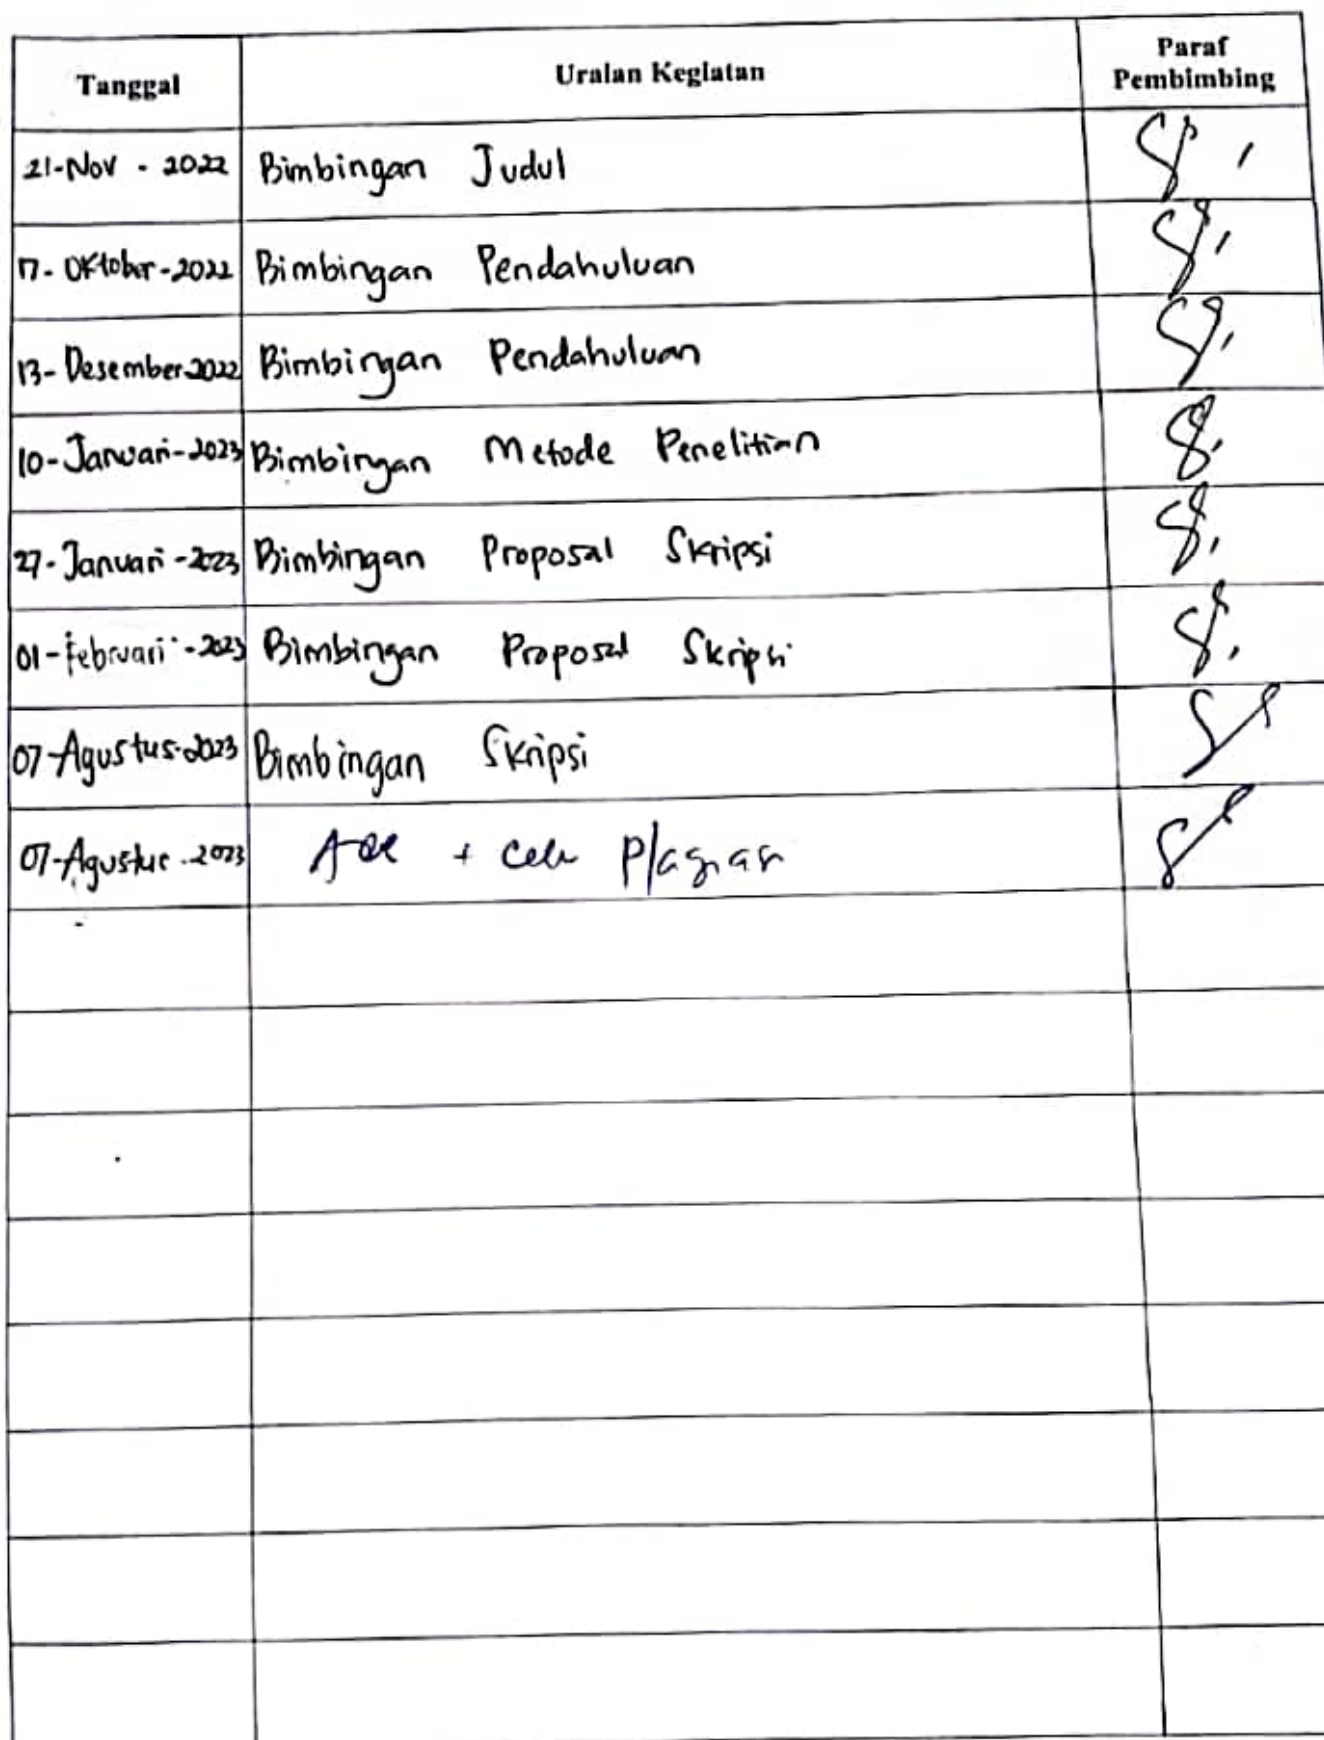 Tanggal
Uraian Kegiatan
Paraf
Pembimbing
21-Nov - 2022 Bimbingan Judul
17- Oktober-2022 Bimbingan Pendahuluan
13- Desember 2022 Bimbingan Pendahuluan
10-Januari-2023 Bimbingan Metode Penelitian
27-Januari-2023 Bimbingan Proposal Skripsi
01-Februari-2023 Bimbingan Proposal Skripsi
07-Agustus-2023 Bimbingan Skripsi
07-Agustus-2023 + Plagiasi